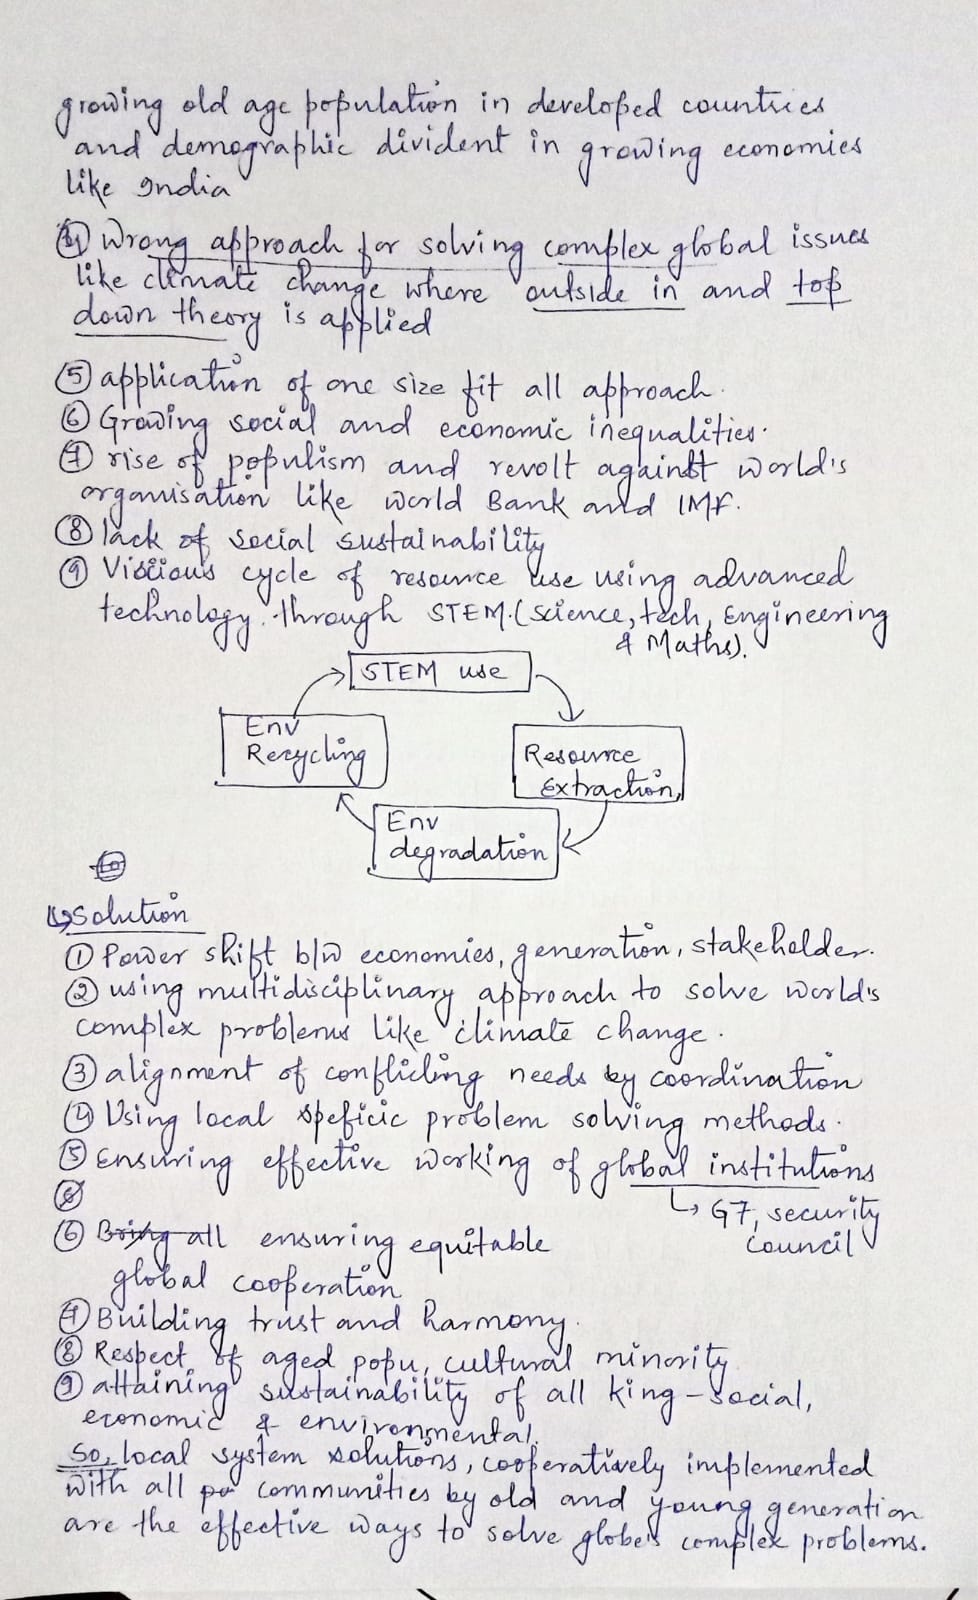 growing old age population in developed countries
and demographic divident in growing economies
like India
④ Wrong approach for solving complex global issues
like climate change where outside in and top
down theory is applied
⑤ application of one size fit all approach.
⑥ Growing social and economic inequalities.
⑦ rise of populism and revolt against world's
organisation like World Bank and IMF.
⑧ lack of social sustainability
⑨ Viscious cycle of resource use using advanced
technology through STEM (Science, tech, Engineering
& Maths).
STEM use
Env
Recycling
Resource
Extraction
Env
degradation
Solution
① Power shift b/w economies, generation, stakeholder.
② using multidisciplinary approach to solve world's
complex problems like climate change.
③ alignment of conflicling needs by coordination
④ Using local speficic problem solving methods.
⑤ Ensuring effective working of global institutions
↳ G7, security
council
⑥
⑥ all ensuring equitable
global cooperation
⑦ Building trust and harmony.
⑧ Respect of aged popu, cultural minority
⑨ attaining sustainability of all king - social,
economic & environmental.
So, local system solutions, cooperatively implemented
with all communities by old and young generation
are the effective ways to solve globe's complex problems.